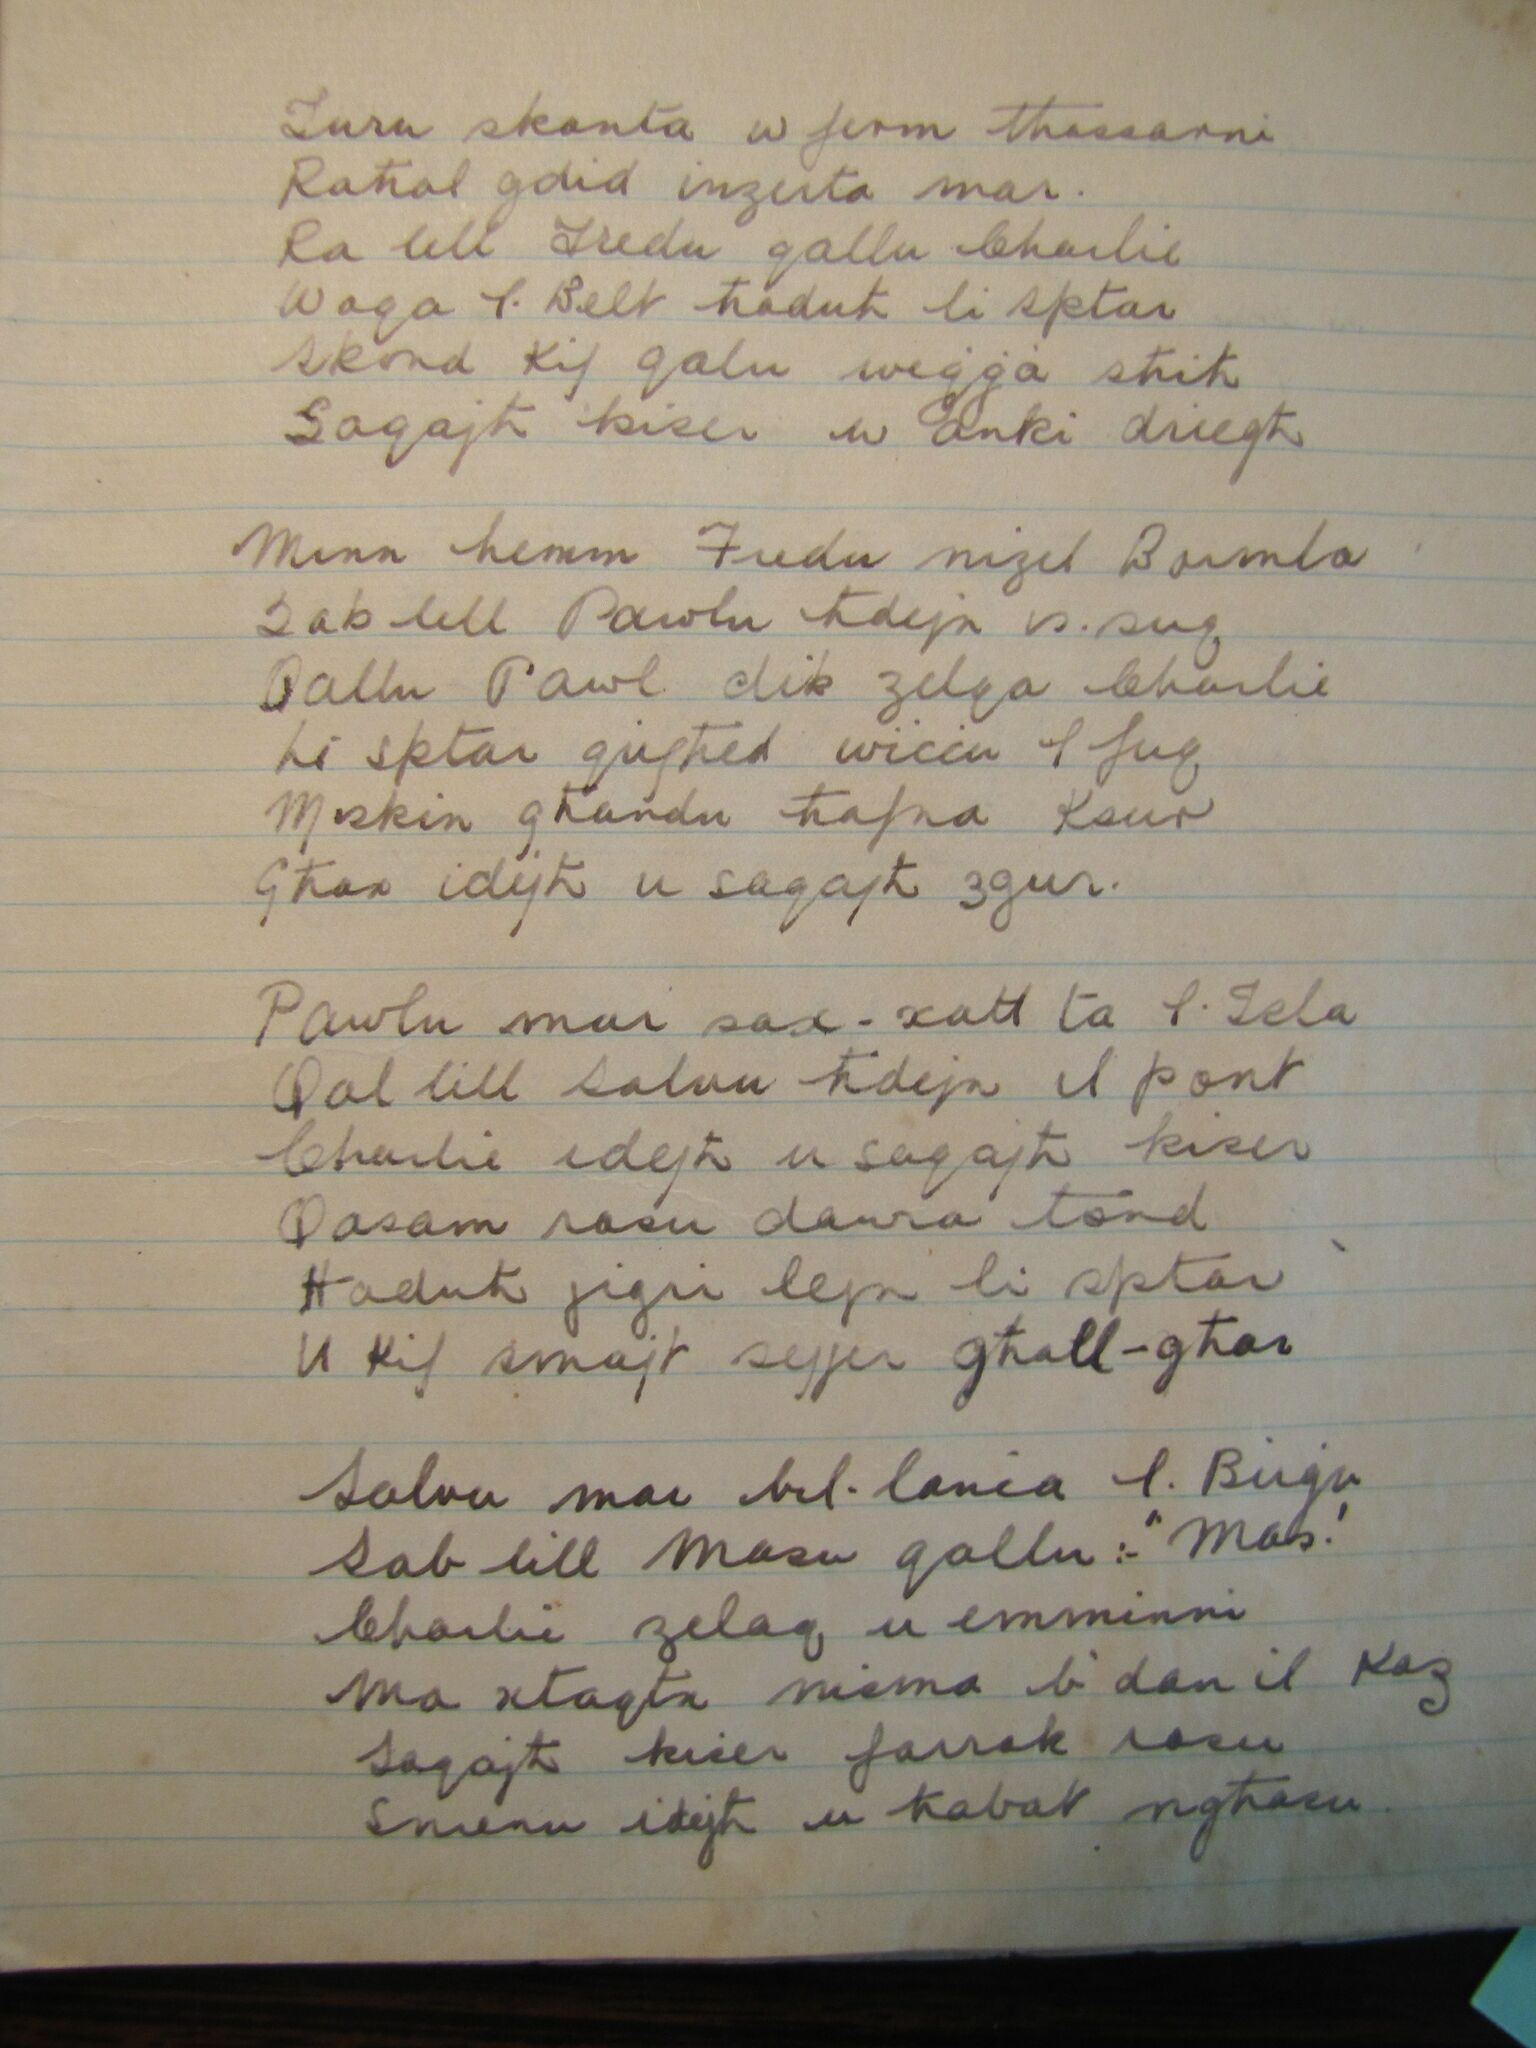 Żuru skonta u ferm tħassarni
Raħal ġdid inzerta mar.
Ra lill Fredu qallu Charlie
Waqa l. Belt ħaduh li sptar
Skond kif qalu weġġa sħiħ
Saqajħ kiser u anki driegħ

Minn hemm Fredu niżel Bormla
Sab lill Pawlu ħdejn is.suq
Qallu Pawl dik żelqa Charlie
Li sptar qiegħed wiċċu l fuq
Miskin għandu ħafna ksur
Għax idejħ u saqajħ żgur.

Pawlu mar sax-xatt ta l. Isla
Qal lill Salvu ħdejn il pont
Charlie idejħ u saqajħ kiser
Qasam rasu dawra tond
Ħaduħ jiġri lejn li sptar
U kif smajt sejjer għall-għar

Salvu mar bil-lanċa l. Birgu
Sab lill Masu qallu:- "Mas!
Charlie żelaq u emminni
Ma xtaqtx nisma b'dan il każ
Saqajħ kiser farrak rasu
Snienu idejħ u ħabat ngħasu.